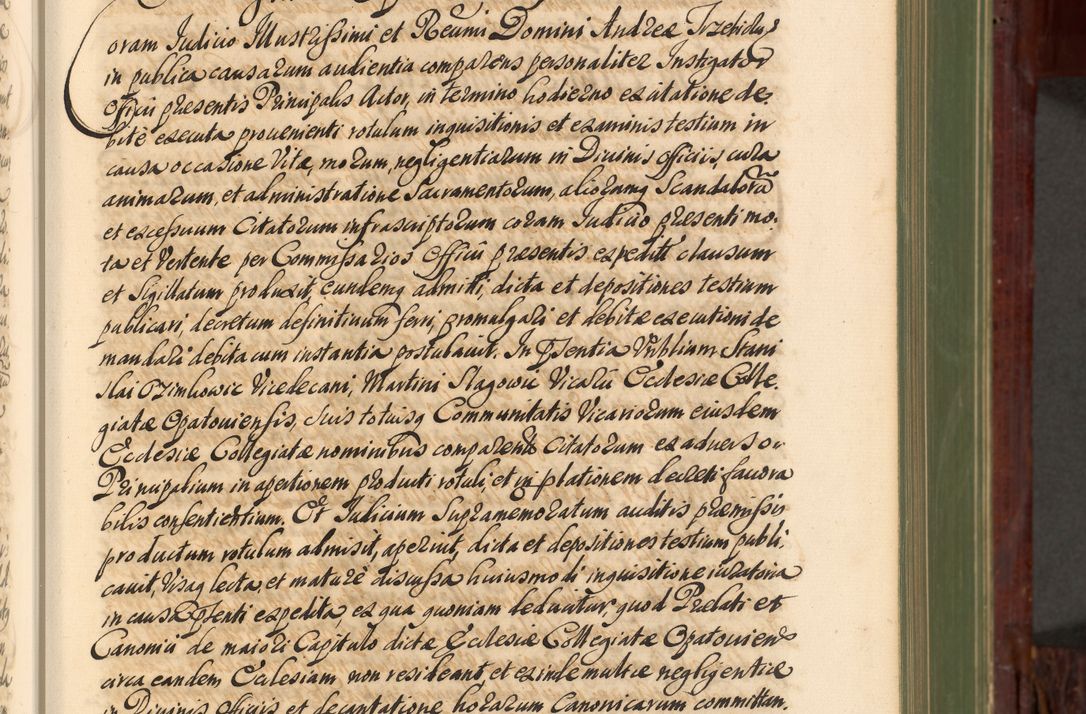 oram Judicio Illustrissimi et Reumi Domini Andreæ Trzebicky
in publica causarum audientia comparens personaliter Instigator
Officii præsentis Principalis Actor, in termino hodierno ex citatione de
bite executa prouenienti rotulum inquisitionis et examinis testium in
causa occasione Vitæ, morum, negligentiarum in Diuinis officiis, cura
animarum, et administratione Sacramentorum, aliorumq Scandalorũ
et excessuum Citatorum infrascriptorum coram Judicio præsenti mo-
ta et Vertente per Commissarios Officii præsentis expediti clausum
et Sigillatum produxit, eundemq admitti, dicta et depositiones testium
publicari, decretum definitiuum ferri, promulgari et debitæ executioni de
mandari debita cum instantia postulauit. In Psentia Vrblium Stani
slai Vicedecani, Martini Vicarii Ecclesiæ Colle
giatæ Opatouiensis, suis totiusq Communitatis Vicariorum eiusdem
Ecclesiæ Collegiatæ nominibus comparent Citatorum ex aduerso
Principalium in apertionem producti rotuli, et in plationem decreti fauora
bilis consentientium. Et Judicium Supramemoratum auditis præmissis
productum rotulum admisit, aperuit, dicta et depositiones testium publi,
cauit, Visaq lecta, et mature discussa huiusmodi inquisitione iuratoria
in causa Psenti expedita, ex qua quoniam deducitur, quod Prælati et
Canonici de maiori Capitulo dictæ Ecclesiæ Collegiatæ Opatouiens
circa eandem Ecclesiam non resideant, et exinde multæ negligentiæ
in Diuinis officiis et decantatione horarum Canonicarum committan,